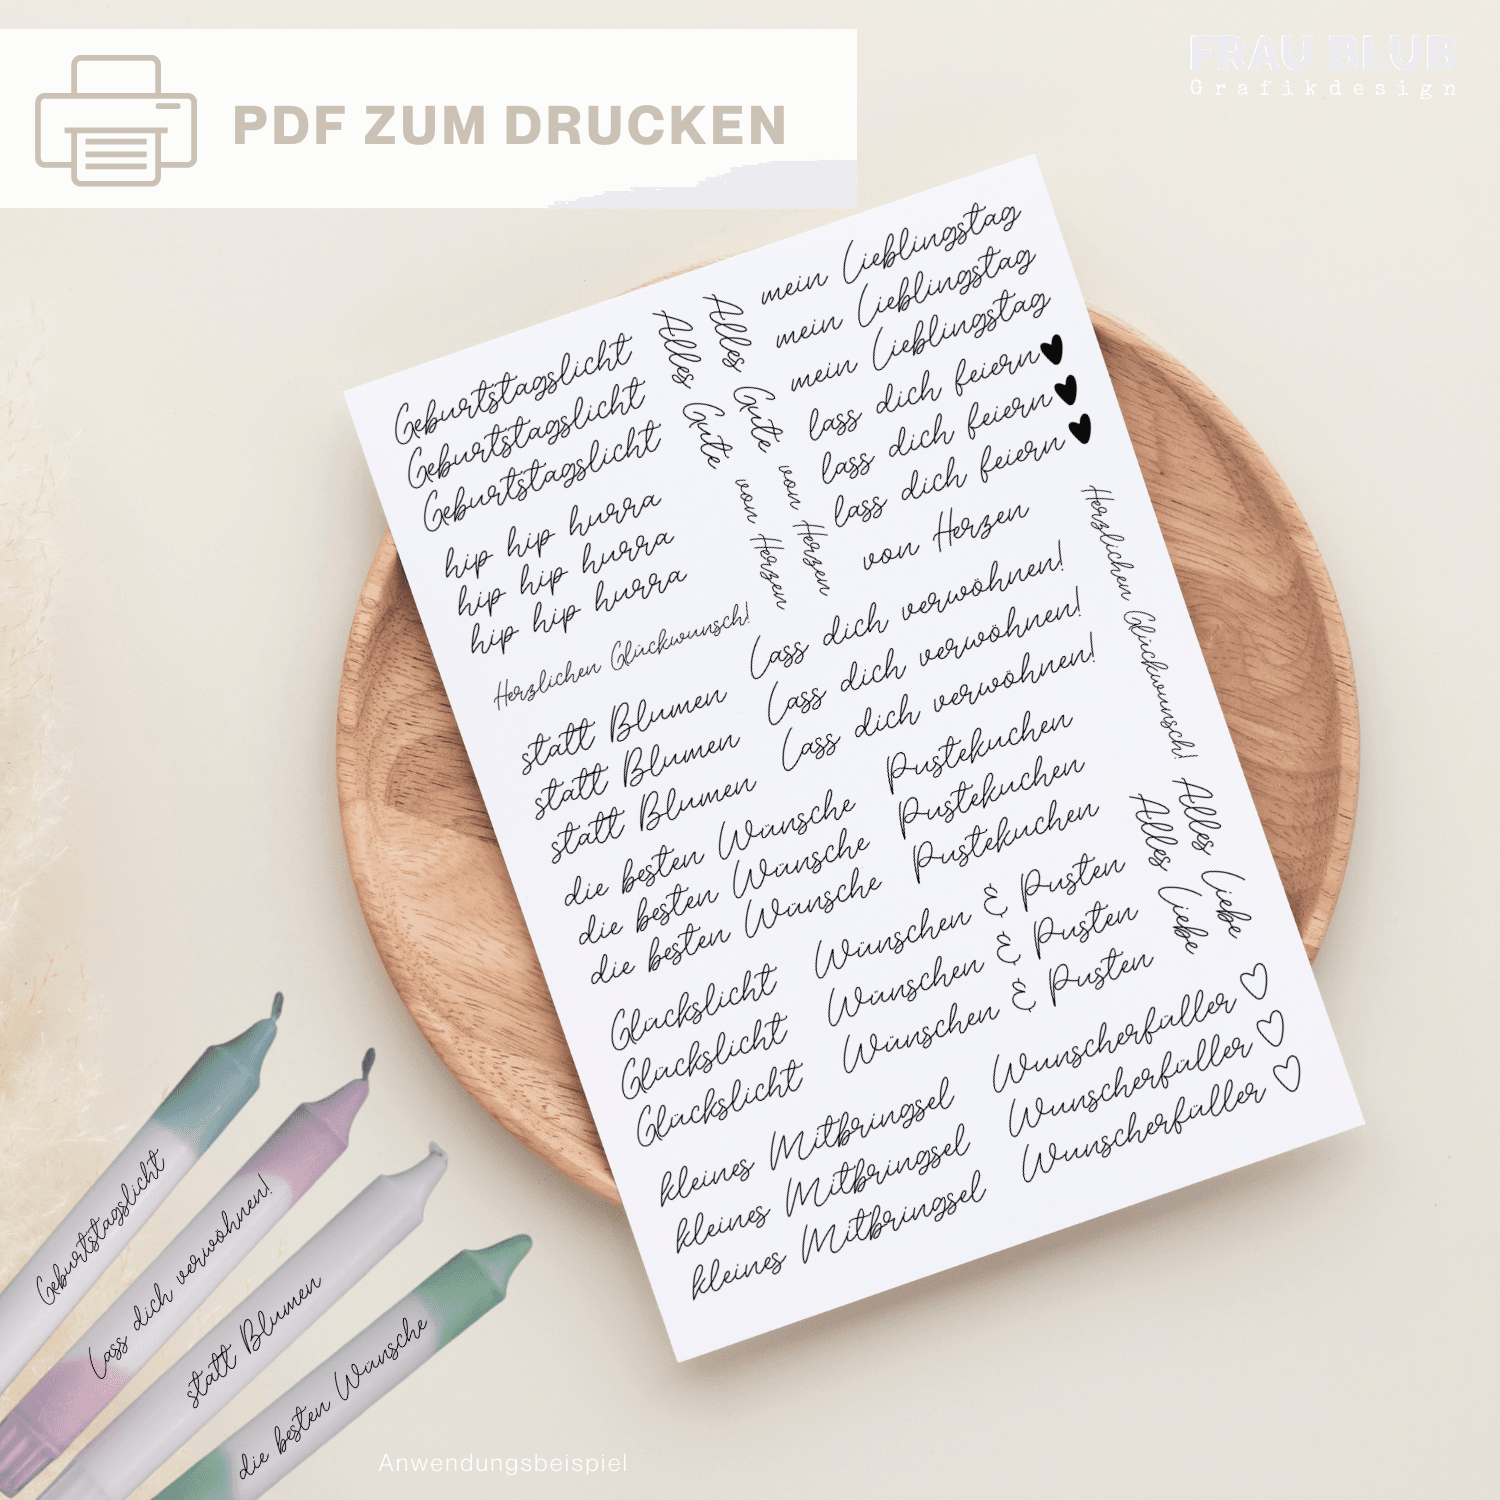 PDF ZUM DRUCKEN
FRAU BLUB
Grafikdesign
Geburtstagslicht
Geburtstagslicht
Geburtstagslicht
hip hip hurra
hip hip hurra
hip hip hurra
Herzlichen Glückwunsch!
Alles Gute von Herzen
Alles Gute von Herzen
mein Lieblingstag
mein Lieblingstag
mein Lieblingstag
lass dich feiern
lass dich feiern
lass dich feiern
von Herzen
Herzlichen Glückwunsch!
Lass dich verwöhnen!
Lass dich verwöhnen!
Lass dich verwöhnen!
statt Blumen
statt Blumen
statt Blumen
die besten Wünsche
die besten Wünsche
die besten Wünsche
Pustekuchen
Pustekuchen
Pustekuchen
Alles Liebe
Alles Liebe
Glückslicht
Glückslicht
Glückslicht
Wünschen & Pusten
Wünschen & Pusten
Wünschen & Pusten
kleines Mitbringsel
kleines Mitbringsel
kleines Mitbringsel
Wunscherfüller ♡
Wunscherfüller ♡
Wunscherfüller ♡
Geburtstagslicht
Lass dich verwöhnen!
statt Blumen
die besten Wünsche
Anwendungsbeispiel